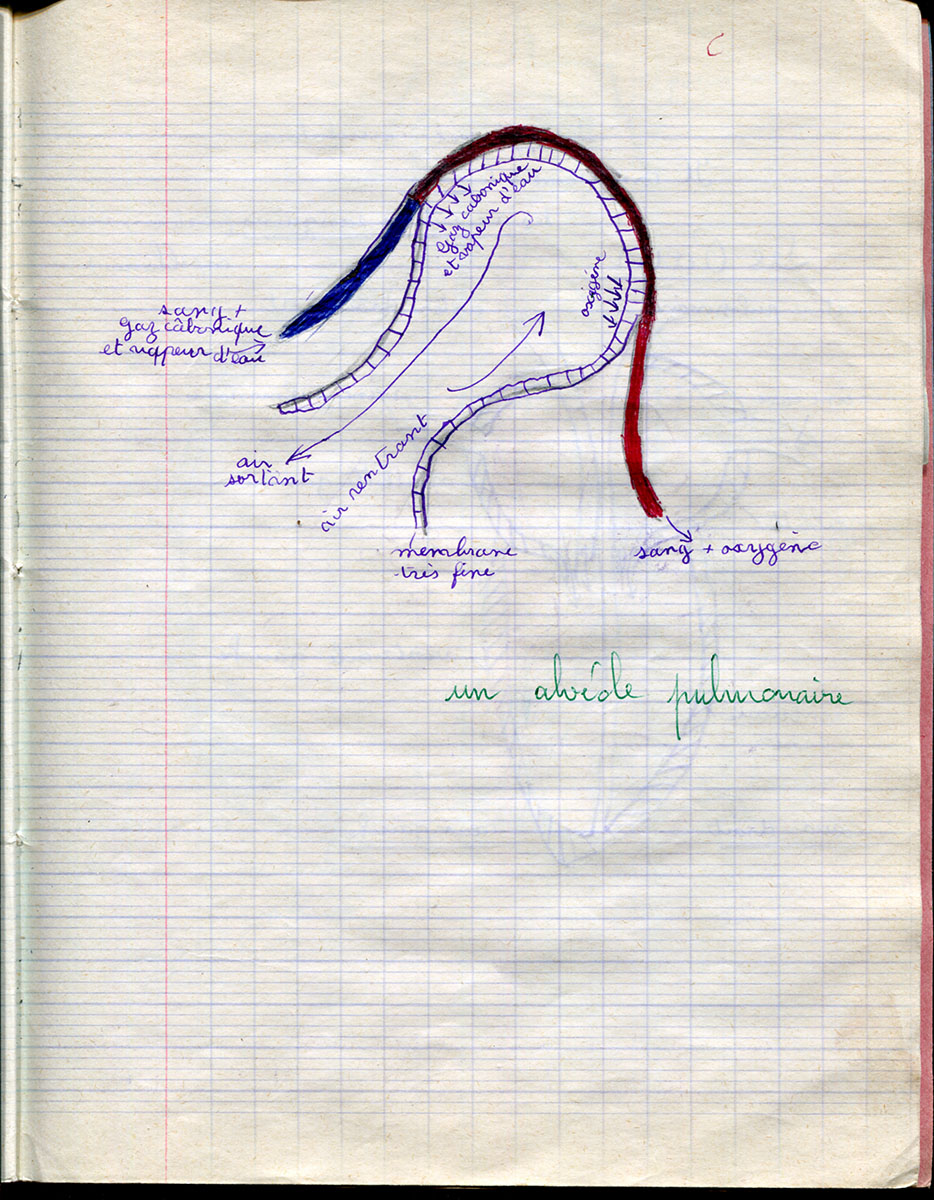 c
Gaz cabonique
et vapeur d'eau
oxygène
sang +
gaz câbonique
et vapeur d'eau
air
sortant
air rentrant
membrane
très fine
sang + oxygène
un alvéole pulmonaire